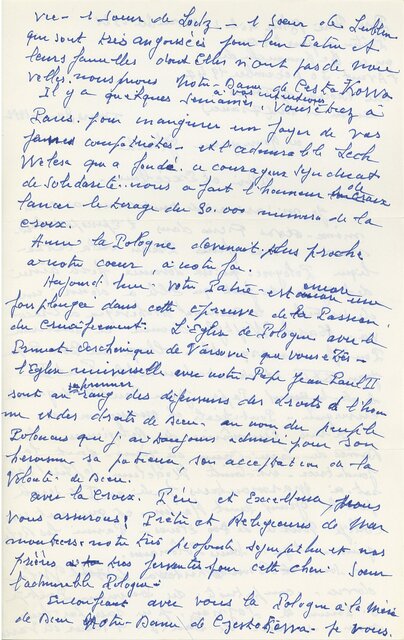 vre - 1 Sœur de Lodz - 1 Sœur de Lublin
qui sont très angoissées pour leur Patrie et
leurs familles dont Elles n'ont pas de nou
velles. nous prions Notre Dame de Cestakowa
à vos intentions
Il y a quelques semaines, vous étiez à
Paris pour inaugurer un foyer de vos
compatriotes - et l'admirable Lech
Walesa qui a fondé ce courageux syndicat
de Solidarité. nous a fait l'honneur de
lancer le tirage du 30.000 numéro de la
Croix.
Ainsi la Pologne devenait plus proche
à notre cœur à notre foi.
Aujourd'hui votre Patrie est encore une
fois plongée dans cette épreuve de la Passion,
du Crucifiement. L'Eglise de Pologne avec le
Primat Archevêque de Varsovie que vous êtes -
l'Eglise universelle avec notre Pape Jean Paul II
sont au rang des défenseurs des droits de l'hom
me et des droits de Dieu - au nom du peuple
Polonais que j'ai toujours admiré pour son
héroïsme sa patience, son acceptation de la
Volonté de Dieu.
avec la Croix. Père et Excellence, nous
vous assurons, Prêtres et Religieuses de
notre très profonde sympathie et nos
prières très ferventes pour cette chère Sœur
l'admirable Pologne.
En confiant avec vous la Pologne à la mère
de Dieu Notre-Dame de Czestokowa - je vous